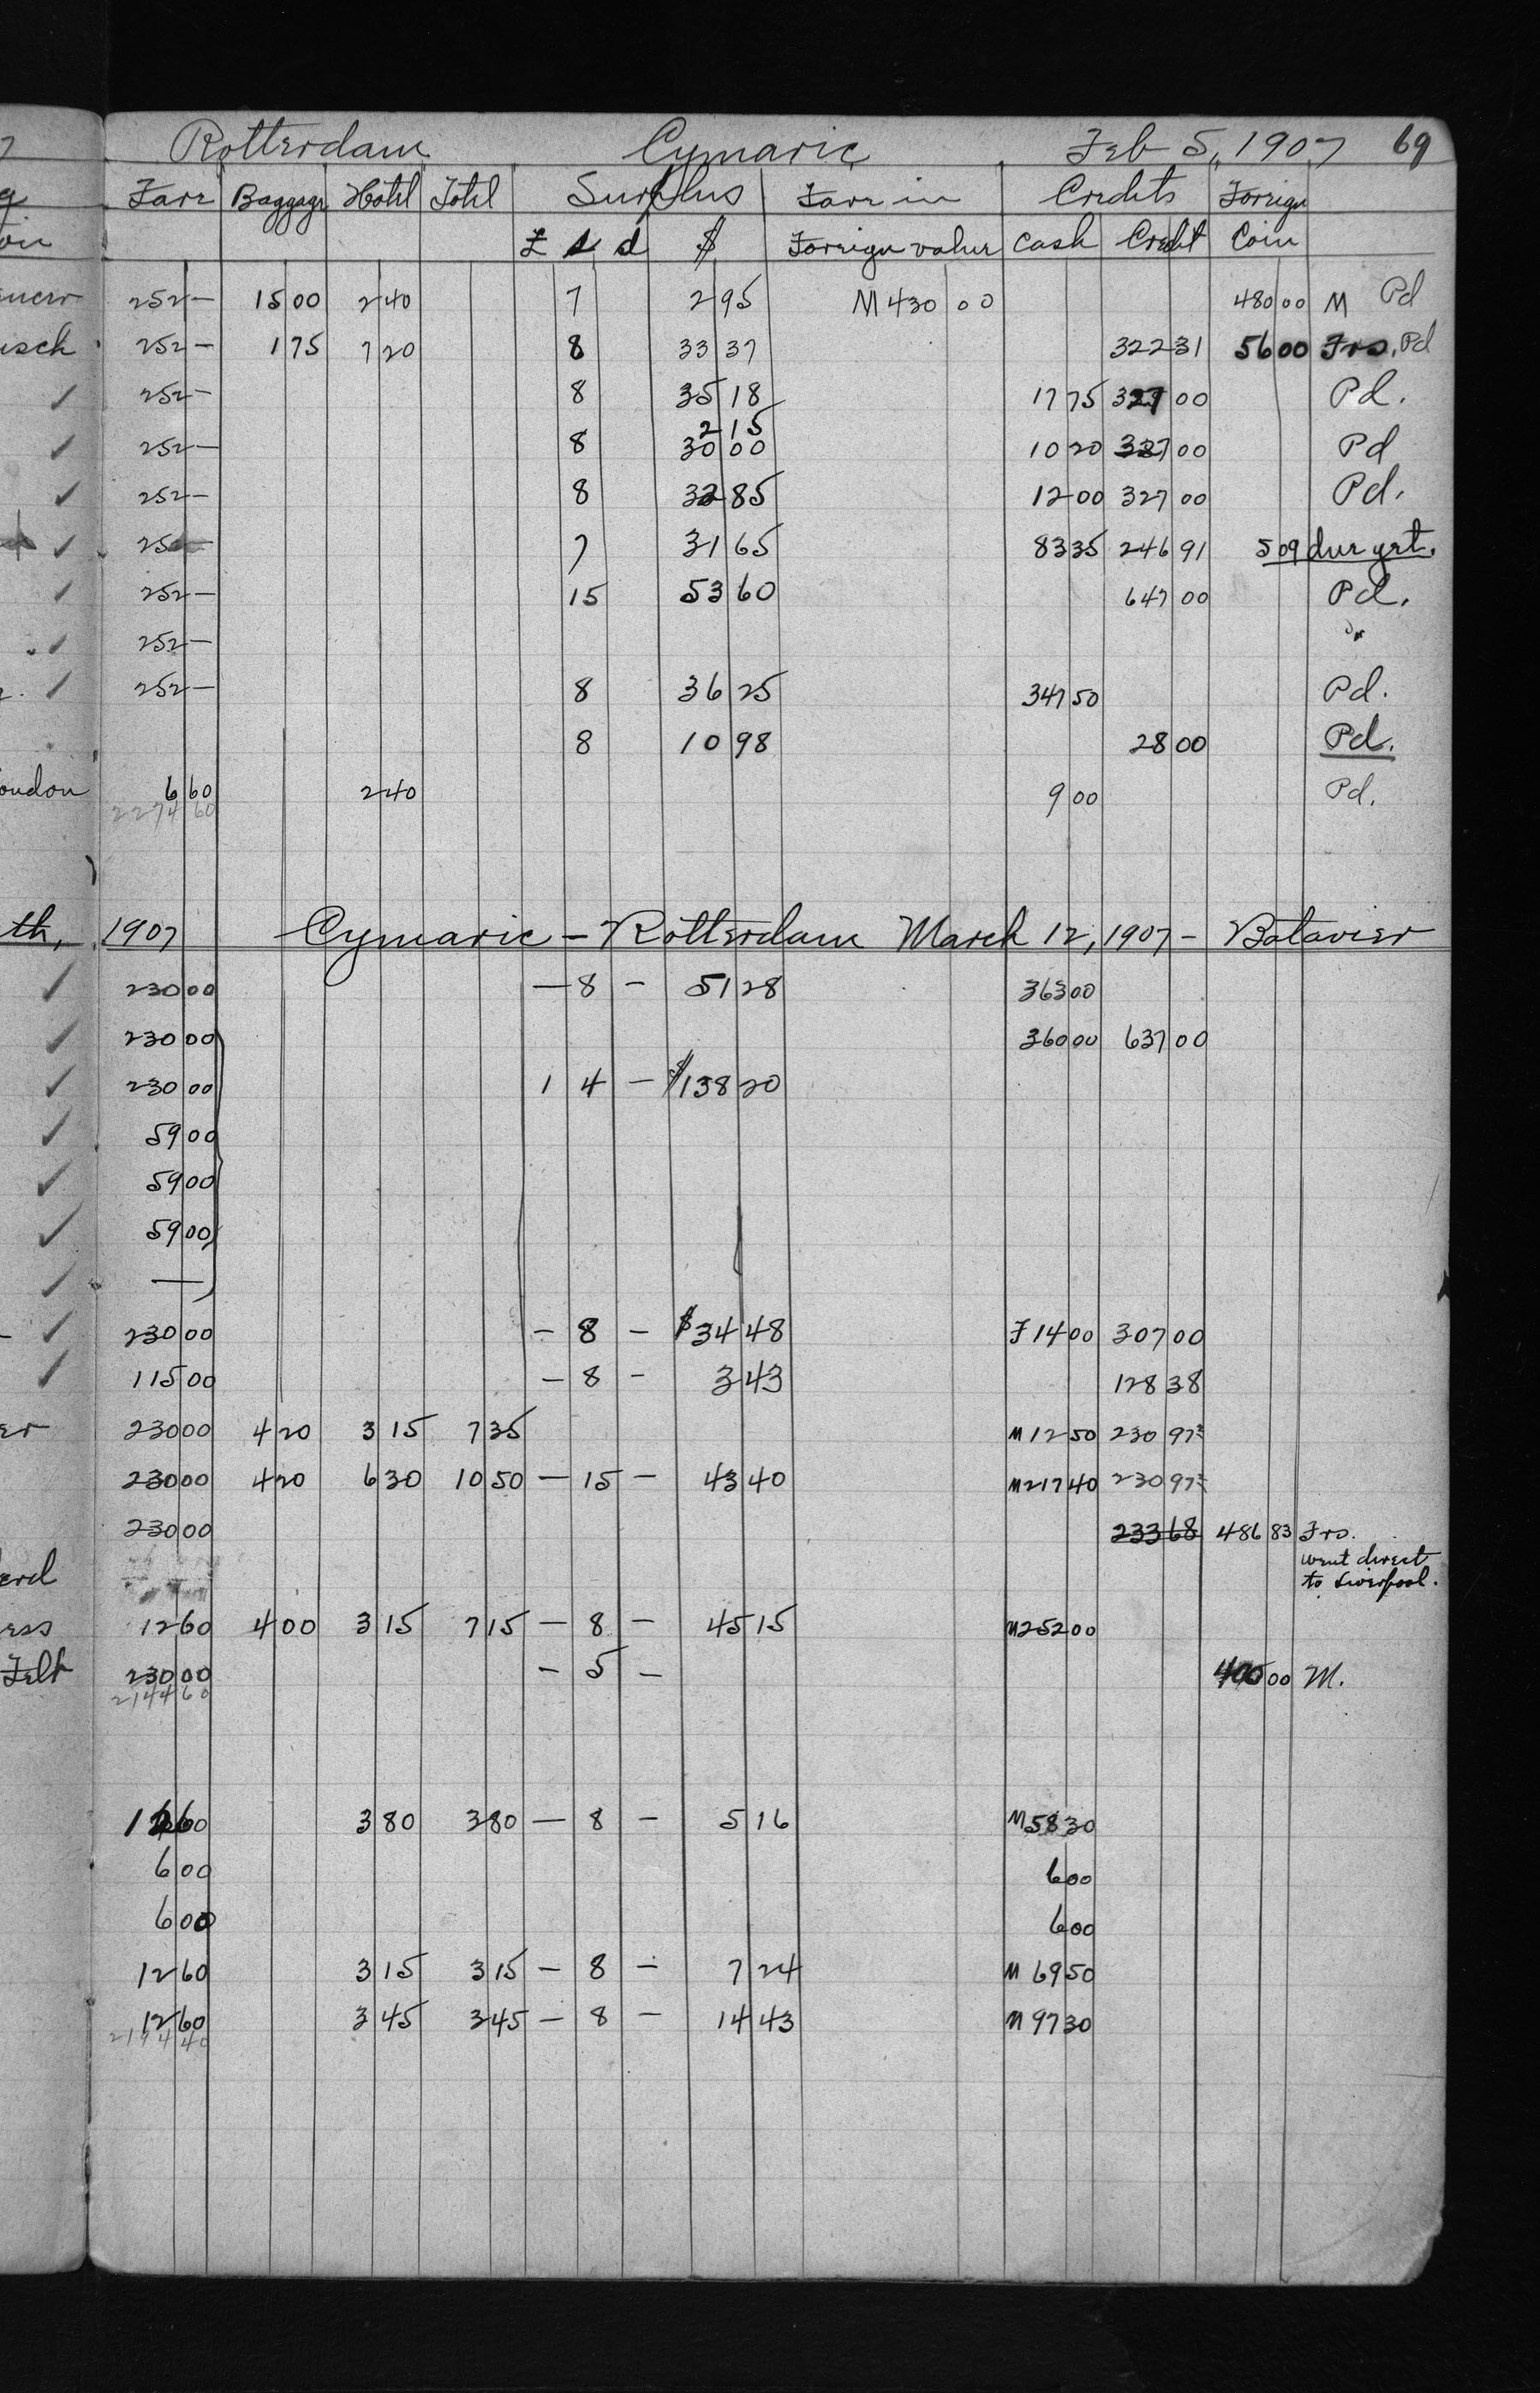 Rotterdam Cymaric Feb 5, 1907 69
Fare Baggage Hotel Totel Surplus Fare in Credits Foreign
£ s d $ Foreign value Cash Credit Coin
252 — 15 00 2 40 7 2 95 M 430 00 480 00 M Pd
252 — 1 75 7 20 8 33 37 322 31 56 00 Frs. Pd
✓ 252 — 8 35 18 17 75 327 00 Pd.
2 15
✓ 252 — 8 30 00 10 20 327 00 Pd
✓ 252 — 8 32 85 12 00 327 00 Pd.
✓ 252 — 7 31 65 83 35 246 91 5 09 due yrt.
✓ 252 — 15 53 60 647 00 Pd.
✓ 252 —
✓ 252 — 8 36 25 347 50 Pd.
8 10 98 28 00 Pd.
London 6 60 2 40 9 00 Pd.
2274 60
th, 1907 Cymaric – Rotterdam March 12, 1907 – Batavier
✓ 230 00 — 8 — 51 28 363 00
✓ 230 00 360 00 637 00
✓ 230 00 1 4 — $138 20
✓ 59 00
✓ 59 00
✓ 59 00
✓ —
✓ 230 00 — 8 — $34 48 F 14 00 307 00
✓ 115 00 — 8 — 3 43 128 38
er 230 00 4 20 3 15 7 35 M 12 50 230 97
230 00 4 20 6 30 10 50 — 15 — 43 40 M 217 40 230 97
230 00 233 68 486 83 Frs.
went direct
to Liverpool.
ess 12 60 4 00 3 15 7 15 — 8 — 45 15 M 252 00
Felt 230 00 — 5 — 400 00 M.
2144 60
12 60 3 80 3 80 — 8 — 5 16 M 58 30
6 00 6 00
6 00 6 00
12 60 3 15 3 15 — 8 — 7 24 M 69 50
12 60 3 45 3 45 — 8 — 14 43 M 97 30
2194 40